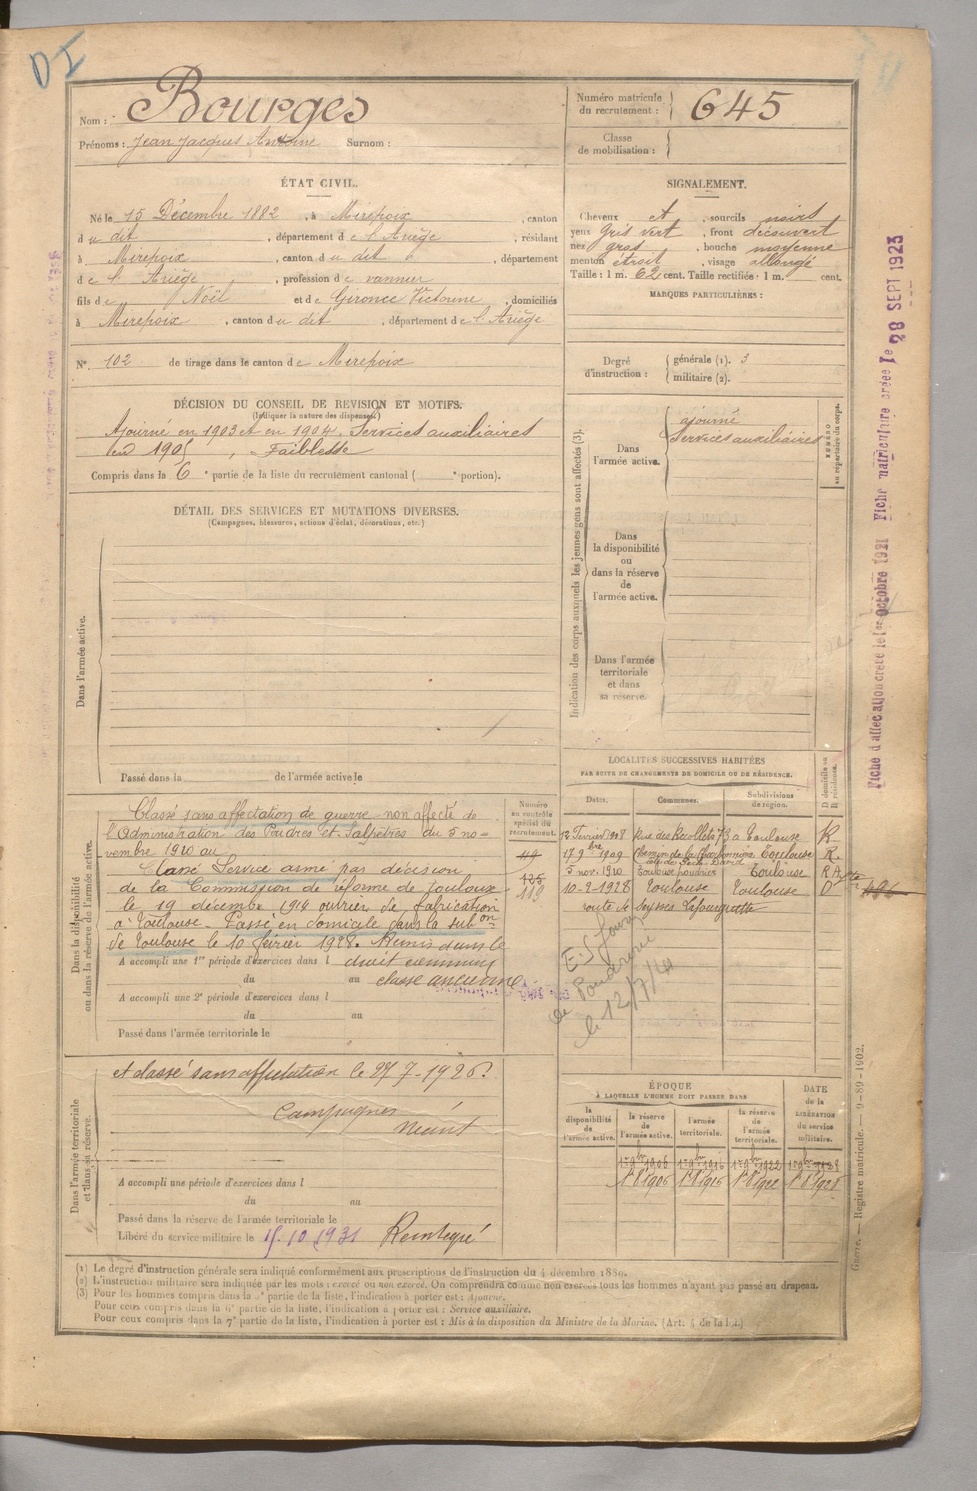 DI
Nom : Bourges
Prénoms : Jean Jacques Antoine Surnom :
Numéro matricule du recrutement : 645
Classe de mobilisation :
ÉTAT CIVIL.
Né le 15 Décembre 1882, à Mirepoix, canton
du dit, département de l'Ariège, résidant
à Mirepoix, canton du dit, département
de l'Ariège, profession de vannier
fils de Noël et de Gironce Victorine, domiciliés
à Mirepoix, canton du dit, département de l'Ariège
N° 102 de tirage dans le canton de Mirepoix
SIGNALEMENT.
Cheveux et, sourcils noirs
yeux gris vert, front découvert
nez gros, bouche moyenne
menton étroit, visage allongé
Taille : 1 m. 62 cent. Taille rectifiée : 1 m. cent.
MARQUES PARTICULIÈRES :
Degré d'instruction : générale (1). 3
militaire (2).
DÉCISION DU CONSEIL DE REVISION ET MOTIFS.
(Indiquer la nature des dispenses.)
Ajourné en 1903 et en 1904. Services auxiliaires
en 1905, Faiblesse
Compris dans la 6e partie de la liste du recrutement cantonal ( e portion).
DÉTAIL DES SERVICES ET MUTATIONS DIVERSES.
(Campagnes, blessures, actions d'éclat, décorations, etc.)
Dans l'armée active.
Passé dans la de l'armée active le
Indication des corps auxquels les jeunes gens sont affectés (3).
Dans l'armée active.
ajourné
Services auxiliaires
NUMÉRO au répertoire du corps.
Dans la disponibilité ou dans la réserve de l'armée active.
Dans l'armée territoriale et dans sa réserve.
Fiche d'affectation créée le 1er Octobre 1921 Fiche matriculaire créée le 28 SEPT 1923
Dans la disponibilité ou dans la réserve de l'armée active.
Classé sans affectation de guerre non affecté de
l'Administration des Poudres et Salpêtres du 5 no-
vembre 1910 au
Classé Service armé par décision
de la Commission de réforme de Toulouse
le 19 décembre 1914 ouvrier de fabrication
à Toulouse. Passé en domicile dans la subon
de Toulouse le 10 février 1928. Remis dans le
A accompli une 1re période d'exercices dans l droit commun
du au classe ancienne
A accompli une 2e période d'exercices dans l
du au
Passé dans l'armée territoriale le
Numéro au contrôle spécial du recrutement.
119
LOCALITÉS SUCCESSIVES HABITÉES
PAR SUITE DE CHANGEMENTS DE DOMICILE OU DE RÉSIDENCE.
Dates. Communes. Subdivisions de région. D domicile ou R résidence.
12 Février 1908 Rue des Recollets 73 à Toulouse R
17 9bre 1909 Chemin de la Toulouse R.
5 nov. 1910 Toulouse poudrerie Toulouse R
10-2-1928 Toulouse Toulouse D
route de Seysses Lafourguette
de Poudrerie
le 12/7/
Dans l'armée territoriale et dans sa réserve.
et classé sans affectation le 27 7-1926.
Campagnes
Néant
A accompli une période d'exercices dans l
du au
Passé dans la réserve de l'armée territoriale le
Libéré du service militaire le 15.10.1931 Réintégré
ÉPOQUE
À LAQUELLE L'HOMME DOIT PASSER DANS
la disponibilité de l'armée active. la réserve de l'armée active. l'armée territoriale. la réserve de l'armée territoriale. DATE de la LIBÉRATION du service militaire.
1er 9bre 1906 1er 9bre 1916 1er 9bre 1922 1er 9bre 1928
Guerre. — Registre matricule. — 9-89-1902.
(1) Le degré d'instruction générale sera indiqué conformément aux prescriptions de l'instruction du 4 décembre 1889.
(2) L'instruction militaire sera indiquée par les mots : exercé ou non exercé. On comprendra comme non exercés tous les hommes n'ayant pas passé au drapeau.
(3) Pour les hommes compris dans la 5e partie de la liste, l'indication à porter est : Ajourné.
Pour ceux compris dans la 6e partie de la liste, l'indication à porter est : Service auxiliaire.
Pour ceux compris dans la 7e partie de la liste, l'indication à porter est : Mis à la disposition du Ministre de la Marine. (Art. 4 de la loi.)